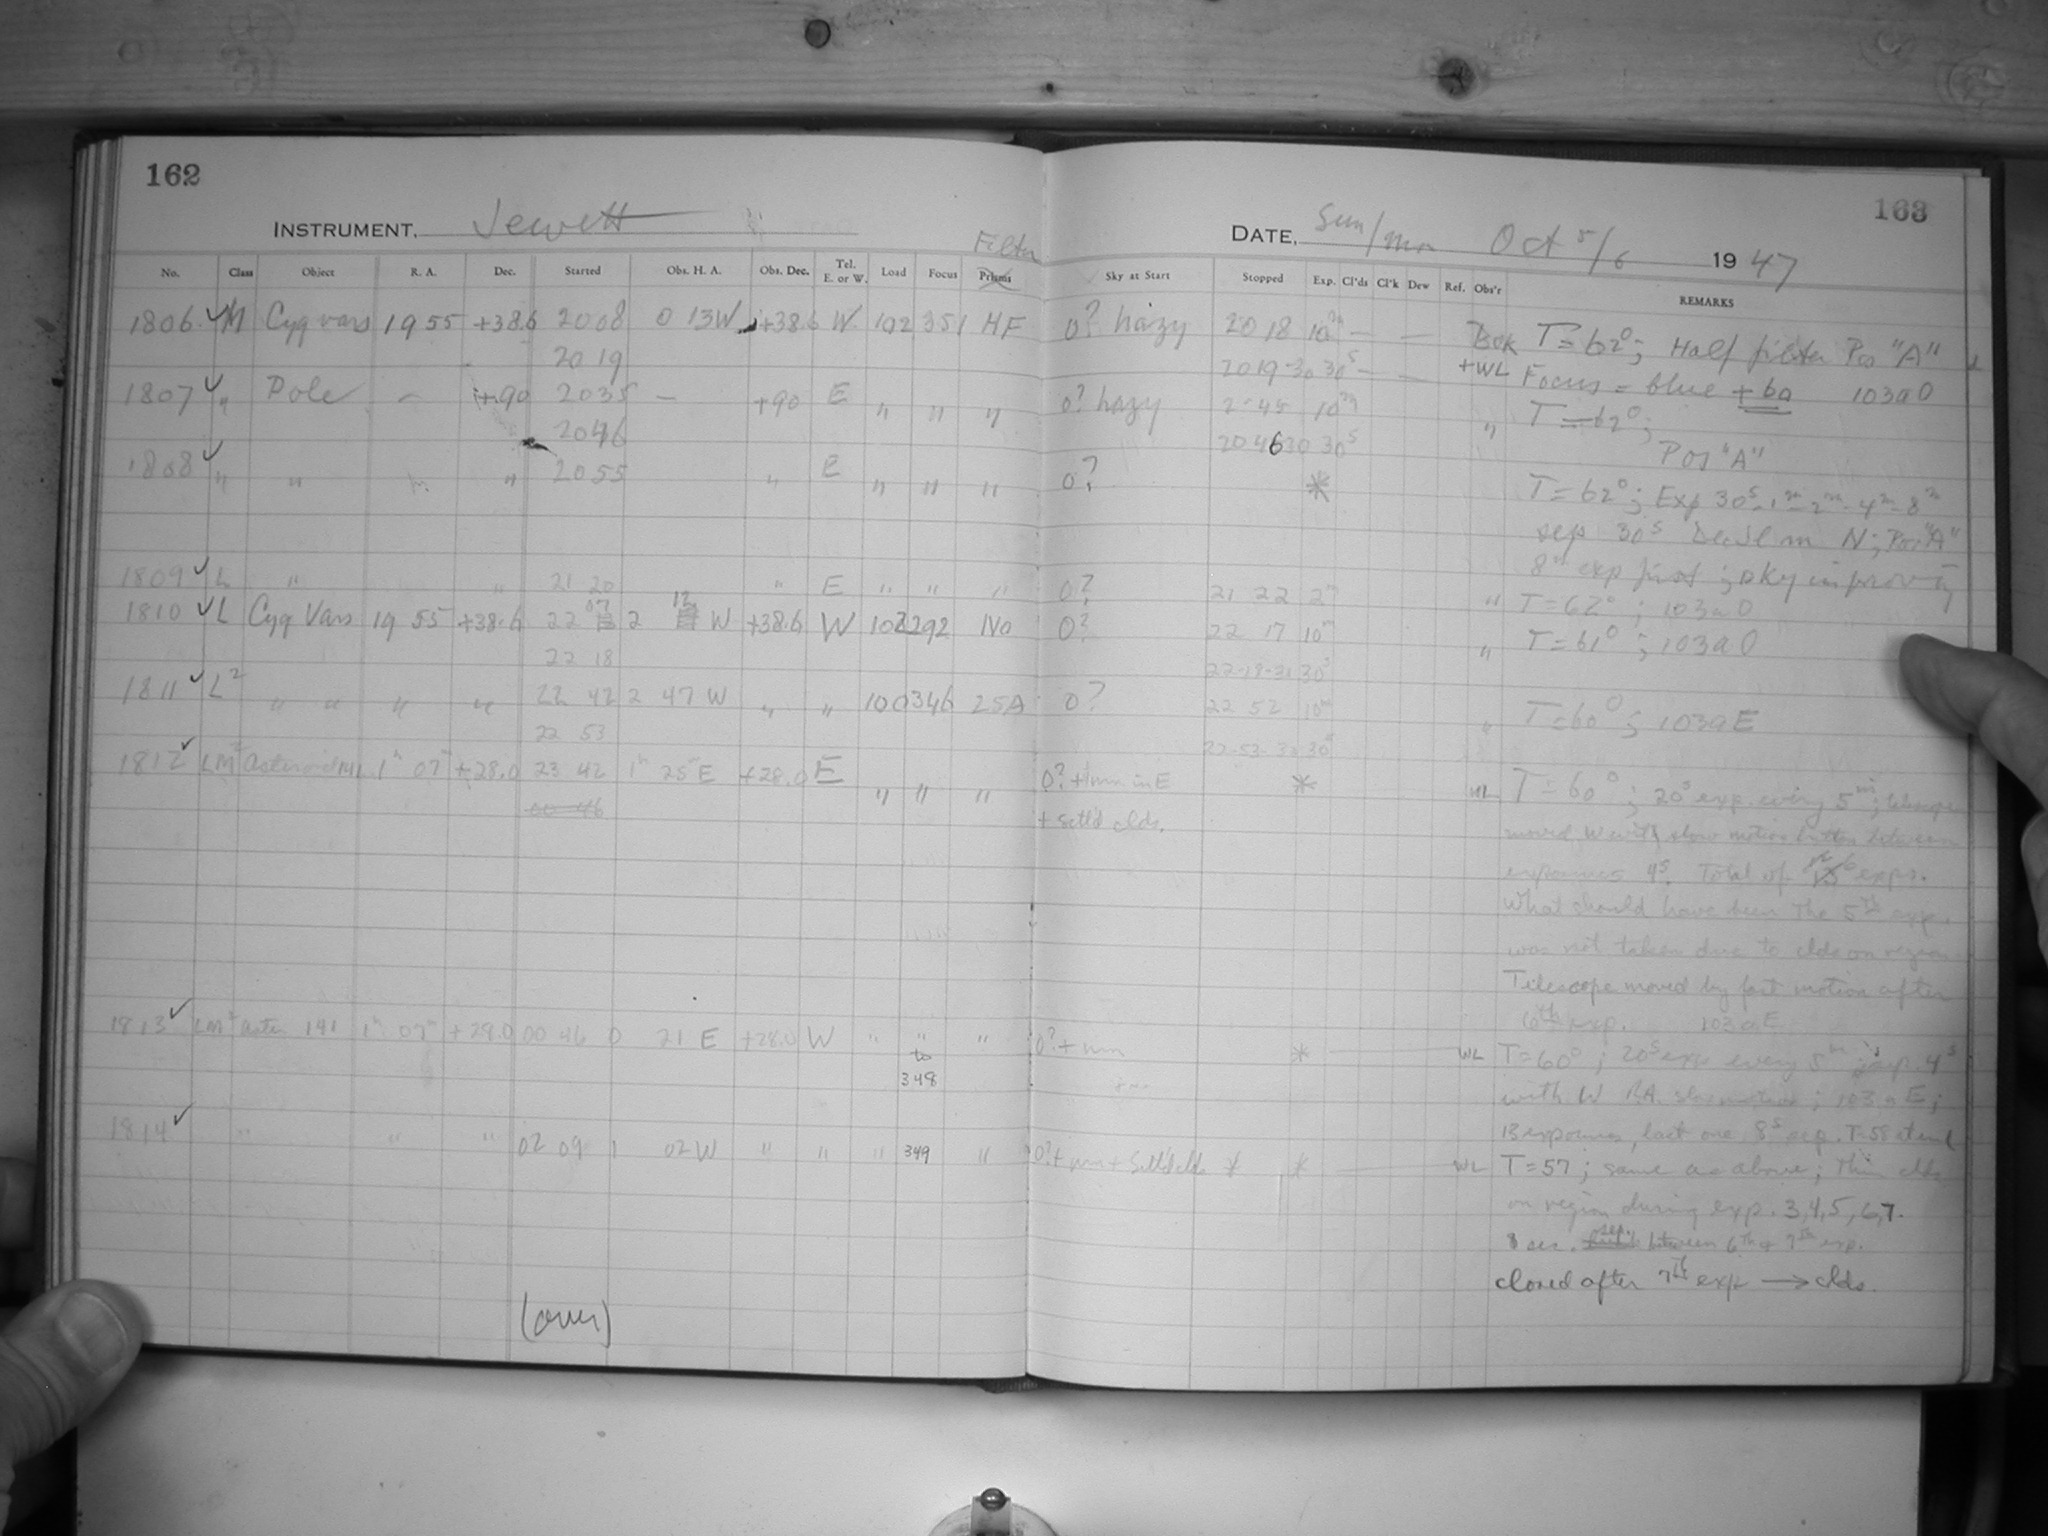 162
163
INSTRUMENT, Jewett
DATE, Sun/Mon Oct 5/6 1947
Filter
No. Class Object R. A. Dec. Started Obs. H. A. Obs. Dec. Tel. E. or W. Load Focus Prisms Sky at Start Stopped Exp. Cl'ds Cl'k Dew Ref. Obs'r REMARKS
1806 ✓ M Cyg vars 19 55 +38.6 2008 0 13W +38.6 W 102 351 HF 0? hazy 20 18 10m — — Bok T=62°; Half filter Pos "A"
2019 2019-30 30s — — +WL Focus = blue +60 103aO
1807 ✓ " Pole — +90 2035 — +90 E " " " 0? hazy 2045 10m " T=62°;
2046 204630 30s Pos "A"
1808 ✓ " " " " 2055 " E " " " 0? * T=62°; Exp 30s-1m-2m-4m-8m
sep 30s Decl on N; Pos "A"
8m exp first; sky improving
1809 ✓ L " " 21 20 " E " " " 0? 21 22 2m " T=62°; 103aO
1810 ✓ L Cyg Vars 19 55 +38.6 22 07 2 12 W +38.6 W 102 292 NO 0? 22 17 10m " T=61°; 103aO
22 18 22-18-31 30s
1811 ✓ L2 " " " " 22 42 2 47 W " " 100 346 25A 0? 22 52 10m " T=60°; 103aE
22 53 22-53-30 30s
1812 ✓ LM2 Asteroid 141 1h 07m +28.0 23 42 1h 25m E +28.0 E " " " 0? + mn in E * WL T=60°; 20s exp. every 5m; telescope
00 46 + sctt'd clds. moved W with slow motion button between
exposures 4s. Total of 12 exps.
What should have been the 5th exp.
was not taken due to clds on region
Telescope moved by fast motion after
6th exp. 103aE
1813 ✓ LM2 Aster 141 1h 07m +29.0 00 46 0 21 E +28.0 W " " " 0? + mn * WL T=60°; 20s exp every 5m; sep. 4s
to with W R.A. slow motion; 103aE;
348
13 exposures, last one 8s sep. T=58 at end
1814 ✓ " " " 02 09 1 02 W " " " 349 " 0? + mn + sctt'd clds * * WL T=57; same as above; thin clds
on region during exp. 3,4,5,6,7.
8 sec. sep. between 6th & 7th exp.
closed after 7th exp → clds.
(over)